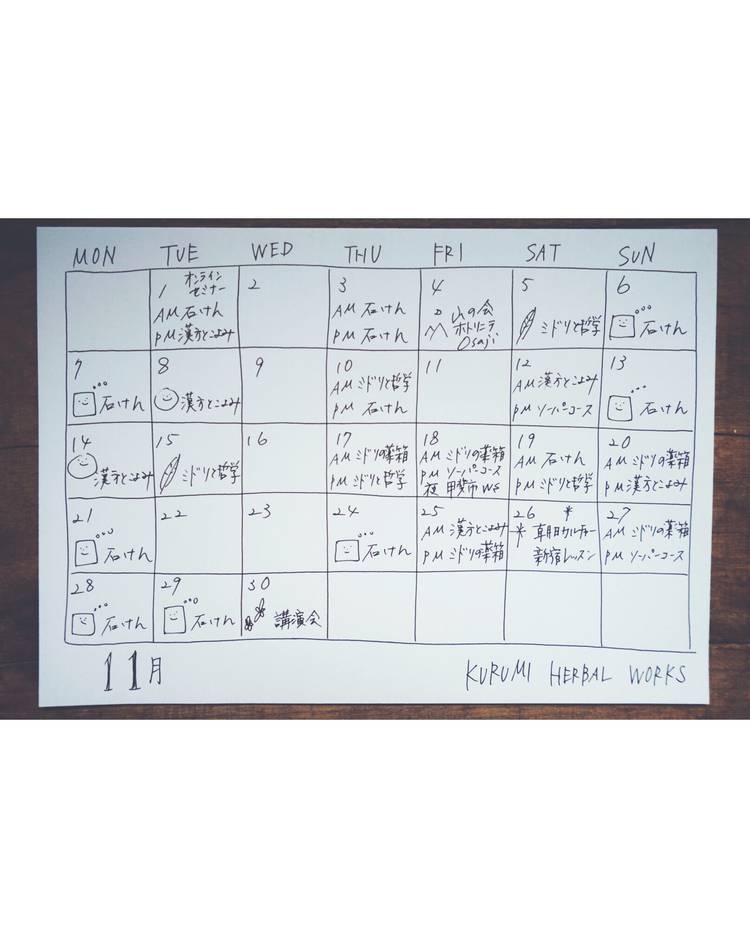 MON TUE WED THU FRI SAT SUN
1 オンライン
セミナー
AM 石けん
PM 漢方とこよみ
2
3
AM 石けん
PM 石けん
4
山の会
ホトリニテ
Osaji
5
ミドリと哲学
6
石けん
7
石けん
8
漢方とこよみ
9
10
AM ミドリと哲学
PM 石けん
11
12
AM 漢方とこよみ
PM ソーパーコース
13
石けん
14
漢方とこよみ
15
ミドリと哲学
16
17
AM ミドリの薬箱
PM ミドリと哲学
18
AM ミドリの薬箱
PM ソーパーコース
夜 甲斐市 WS
19
AM 石けん
PM ミドリと哲学
20
AM ミドリの薬箱
PM 漢方とこよみ
21
石けん
22
23
24
石けん
25
AM 漢方とこよみ
PM ミドリの薬箱
26 *
* 朝日カルチャー
新宿レッスン
27
AM ミドリの薬箱
PM ソーパーコース
28
石けん
29
石けん
30
講演会
11月
KURUMI HERBAL WORKS